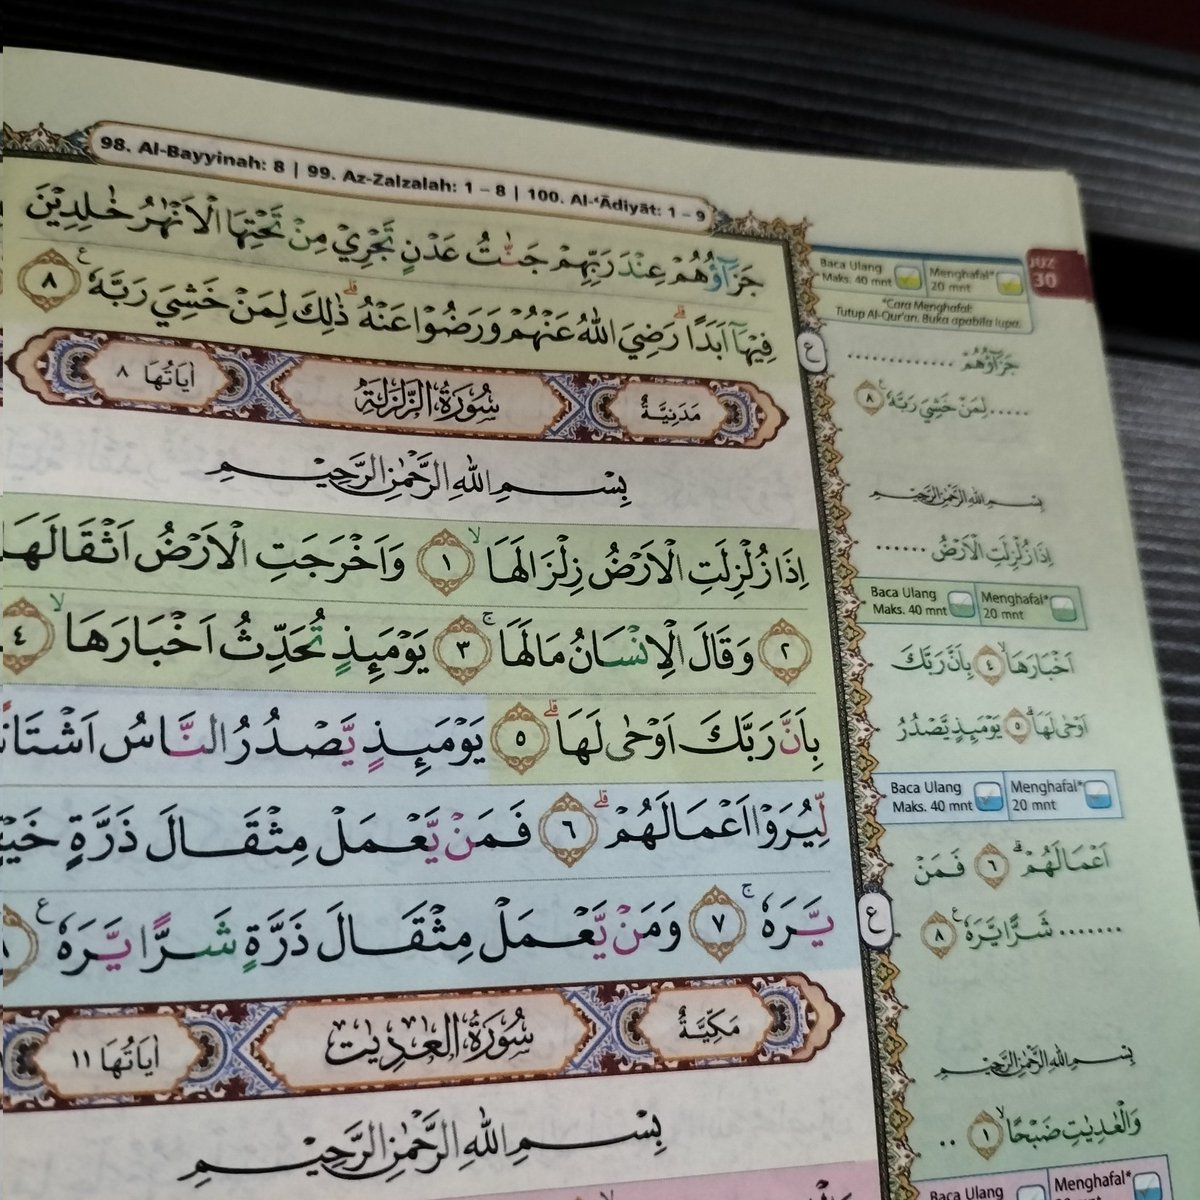 98. Al-Bayyinah: 8 | 99. Az-Zalzalah: 1 – 8 | 100. Al-‘Ādiyāt: 1 – 9
جَزَاۤؤُهُمْ عِنْدَ رَبِّهِمْ جَنّٰتُ عَدْنٍ تَجْرِيْ مِنْ تَحْتِهَا الْاَنْهٰرُ خٰلِدِيْنَ
فِيْهَآ اَبَدًا ۗ رَضِيَ اللّٰهُ عَنْهُمْ وَرَضُوْا عَنْهُ ۗ ذٰلِكَ لِمَنْ خَشِيَ رَبَّهٗ ࣖ ٨
مَدَنِيَّةٌ سُوْرَةُ الزَّلْزَلَةِ اٰيَاتُهَا ٨
بِسْمِ اللّٰهِ الرَّحْمٰنِ الرَّحِيْمِ
اِذَا زُلْزِلَتِ الْاَرْضُ زِلْزَالَهَاۙ ١ وَاَخْرَجَتِ الْاَرْضُ اَثْقَالَهَا
٢ وَقَالَ الْاِنْسَانُ مَا لَهَاۚ ٣ يَوْمَىِٕذٍ تُحَدِّثُ اَخْبَارَهَاۙ ٤
بِاَنَّ رَبَّكَ اَوْحٰى لَهَاۗ ٥ يَوْمَىِٕذٍ يَّصْدُرُ النَّاسُ
لِّيُرَوْا اَعْمَالَهُمْۗ ٦ فَمَنْ يَّعْمَلْ مِثْقَالَ ذَرَّةٍ
يَّرَهٗۚ ٧ وَمَنْ يَّعْمَلْ مِثْقَالَ ذَرَّةٍ شَرًّا يَّرَهٗ ࣖ ٨
مَكِّيَّةٌ سُوْرَةُ الْعٰدِيٰتِ اٰيَاتُهَا ١١
بِسْمِ اللّٰهِ الرَّحْمٰنِ الرَّحِيْمِ
JUZ
30
Baca Ulang Menghafal*
Maks. 40 mnt 20 mnt
*Cara Menghafal:
Tutup Al-Qur'an. Buka apabila lupa.
ع
جَزَاۤؤُهُمْ ............
..... لِمَنْ خَشِيَ رَبَّهٗ ࣖ ٨
بِسْمِ اللّٰهِ الرَّحْمٰنِ الرَّحِيْمِ
اِذَا زُلْزِلَتِ الْاَرْضُ ......
Baca Ulang Menghafal*
Maks. 40 mnt 20 mnt
اَخْبَارَهَاۙ ٤ بِاَنَّ رَبَّكَ
اَوْحٰى لَهَاۗ ٥ يَوْمَىِٕذٍ يَّصْدُرُ
Baca Ulang Menghafal*
Maks. 40 mnt 20 mnt
اَعْمَالَهُمْۗ ٦ فَمَنْ
ع
....... شَرًّا يَّرَهٗ ࣖ ٨
بِسْمِ اللّٰهِ الرَّحْمٰنِ الرَّحِيْمِ
وَالْعٰدِيٰتِ ضَبْحًاۙ ١ ..
Baca Ulang Menghafal*